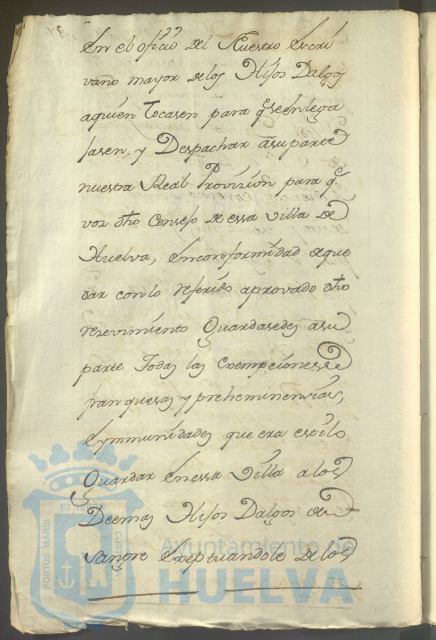 En el oficio del Nuestro Escri
vano mayor de los Hijos Dalgos
aquien tocasen para q̃ se ẽnlega
jasen, y Despachar asu parte
nuestra Real Provision para q̃
vos dho Consejo de essa villa de
Huelva, Enconformidad deque
dar con lo referido aprovado dho
rezevimiento Guardasedes asu
parte Todas las exempciones
franquesas y preheminencias,
Eymmunidades que era estilo
Guardar Enessa Villa a los
Demas Hijos Dalgos de
Sangre Exeptuandole de los
PORTUS MARIS
Ayuntamiento de
HUELVA